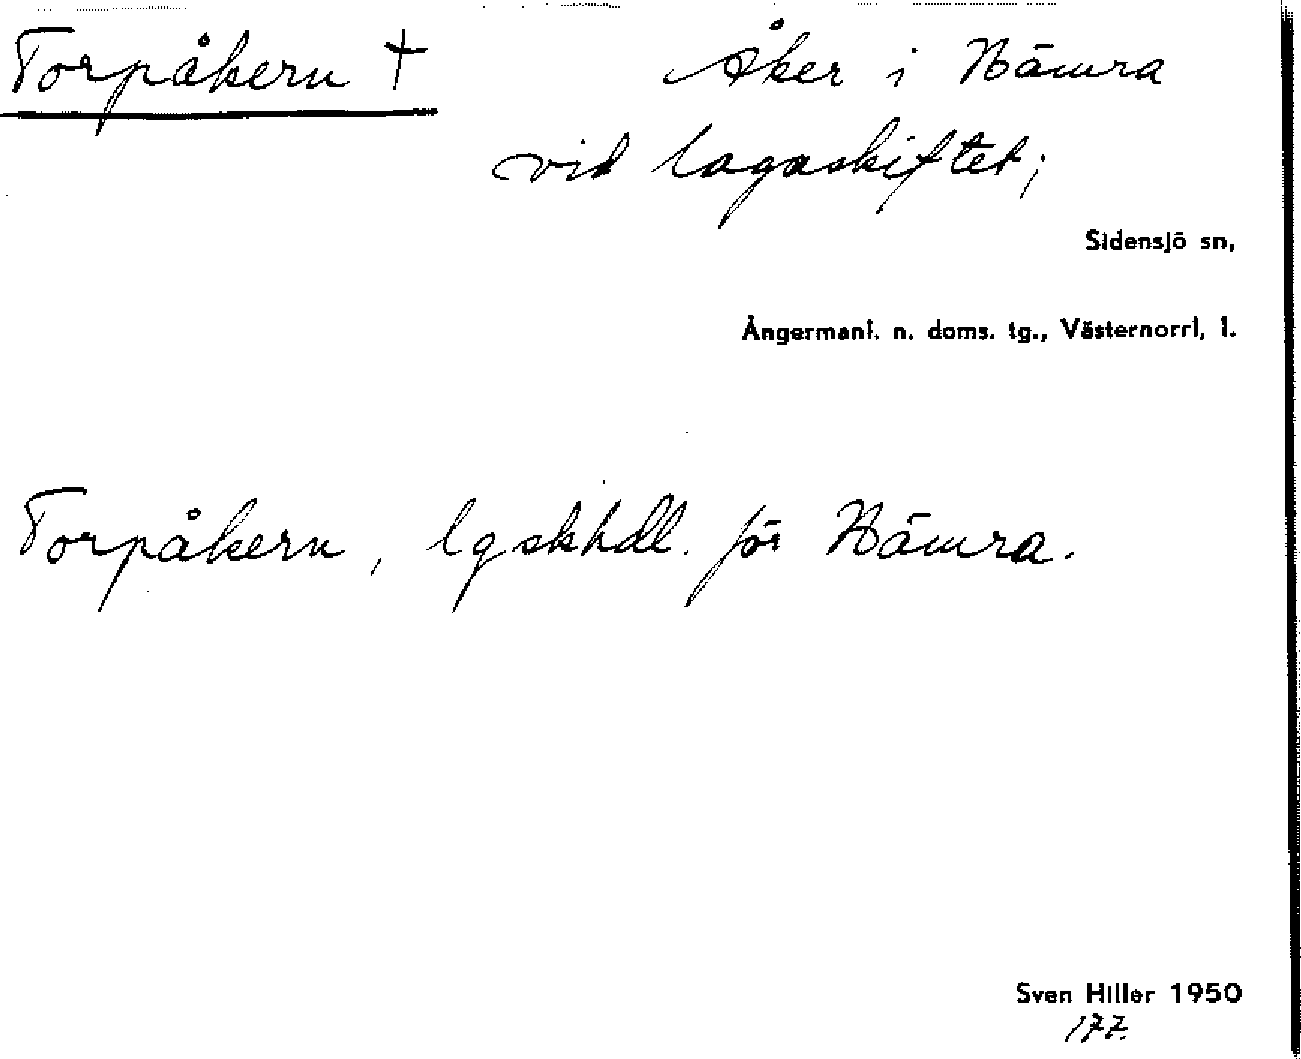 Torpåkern † Åker i Nämra
vid lagaskiftet;
Sidensjö sn,
Ångermanl. n. doms. tg., Västernorrl, l.
Torpåkern, lgskhdl. för Nämra.
Sven Hiller 1950
177.